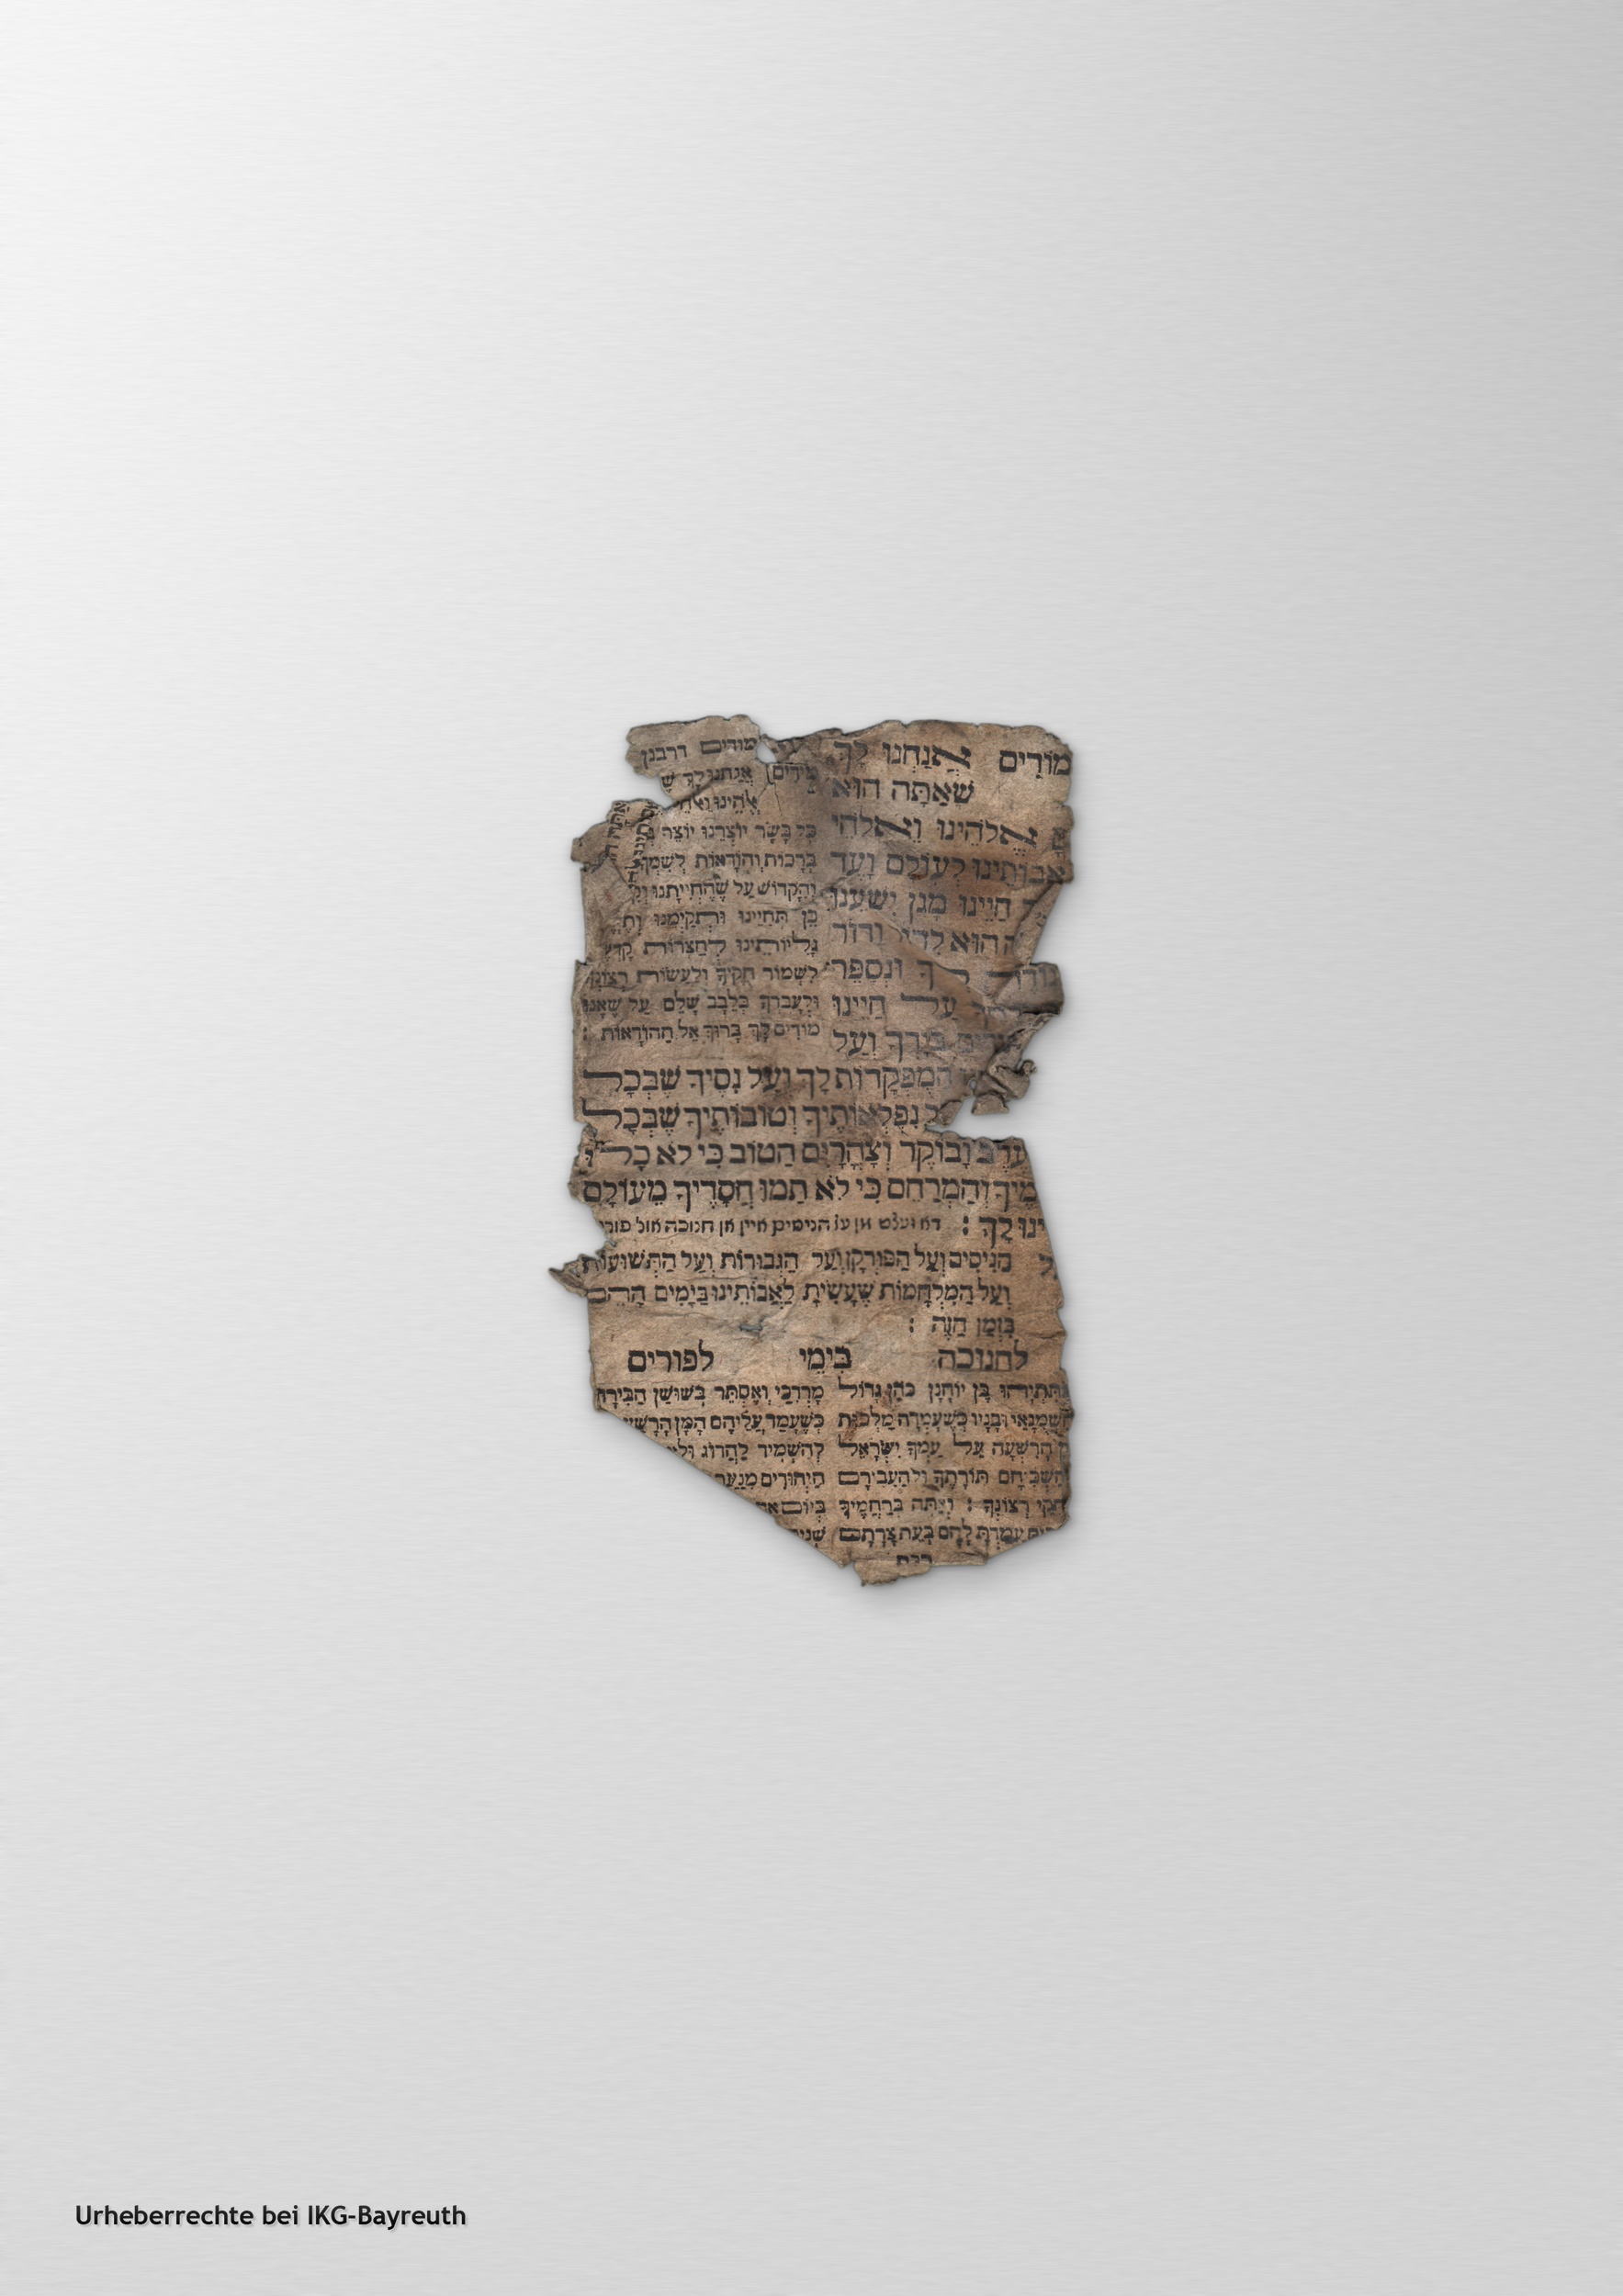 מוֹדִים אֲנַחְנוּ לָךְ
שֶׁאַתָּה הוּא
אֱלֹהֵינוּ וֵאלֹהֵי
אֲבוֹתֵינוּ לְעוֹלָם וָעֶד
חַיֵּינוּ מָגֵן יִשְׁעֵנוּ
הוּא לְדוֹר וָדוֹר
ךָ וּנְסַפֵּר
עַל חַיֵּינוּ
בְּיָדֶךָ וְעַל
הַמְּפֻקָּדוֹת לָךְ וְעַל נִסֶּיךָ שֶׁבְּכָל
נִפְלְאוֹתֶיךָ וְטוֹבוֹתֶיךָ שֶׁבְּכָל
עֶרֶב וָבוֹקֶר וְצָהֳרָיִם הַטּוֹב כִּי לֹא כָלוּ
מֶיךָ וְהַמְרַחֵם כִּי לֹא תַמּוּ חֲסָדֶיךָ מֵעוֹלָם
ינוּ לָךְ :
מודים דרבנן
מוֹדִים אֲנַחְנוּ לָךְ שָׁ
אֱלֹהֵינוּ וֵאלֹהֵי
כָּל בָּשָׂר יוֹצְרֵנוּ יוֹצֵר
בְּרָכוֹת וְהוֹדָאוֹת לְשִׁמְךָ
וְהַקָּדוֹשׁ עַל שֶׁהֶחֱיִיתָנוּ וְקִ
כֵּן תְּחַיֵּינוּ וּתְקַיְּמֵנוּ וְ
גָּלִיּוֹתֵינוּ לְחַצְרוֹת קָדְ
לִשְׁמוֹר חֻקֶּיךָ וְלַעֲשׂוֹת רְצוֹנְ
וּלְעָבְדְךָ בְּלֵבָב שָׁלֵם עַל שֶׁאָנוּ
מוֹדִים לָךְ בָּרוּךְ אֵל הַהוֹדָאוֹת :
הניסים איין אן חנוכה אונ פורי
הַנִּיסִים וְעַל הַפּוּרְקָן וְעַל הַגְּבוּרוֹת וְעַל הַתְּשׁוּעוֹת
וְעַל הַמִּלְחָמוֹת שֶׁעָשִׂיתָ לַאֲבוֹתֵינוּ בַּיָּמִים הָהֵם
בַּזְּמַן הַזֶּה :
לחנוכה בִּימֵי לפורים
מַתִּתְיָהוּ בֶּן יוֹחָנָן כֹּהֵן גָּדוֹל
חַשְׁמוֹנָאִי וּבָנָיו כְּשֶׁעָמְדָה מַלְכוּת
הָרְשָׁעָה עַל עַמְּךָ יִשְׂרָאֵל
לְהַשְׁכִּיחָם תּוֹרָתֶךָ וּלְהַעֲבִירָם
חֻקֵּי רְצוֹנֶךָ : וְאַתָּה בְּרַחֲמֶיךָ
עָמַדְתָּ לָהֶם בְּעֵת צָרָתָם
מָרְדְּכַי וְאֶסְתֵּר בְּשׁוּשַׁן הַבִּירָה
כְּשֶׁעָמַד עֲלֵיהֶם הָמָן הָרָשָׁע
לְהַשְׁמִיד לַהֲרוֹג וּלְ
הַיְּהוּדִים מִנַּעַר
בְּיוֹם אֶ
שְׁנֵי
Urheberrechte bei IKG-Bayreuth